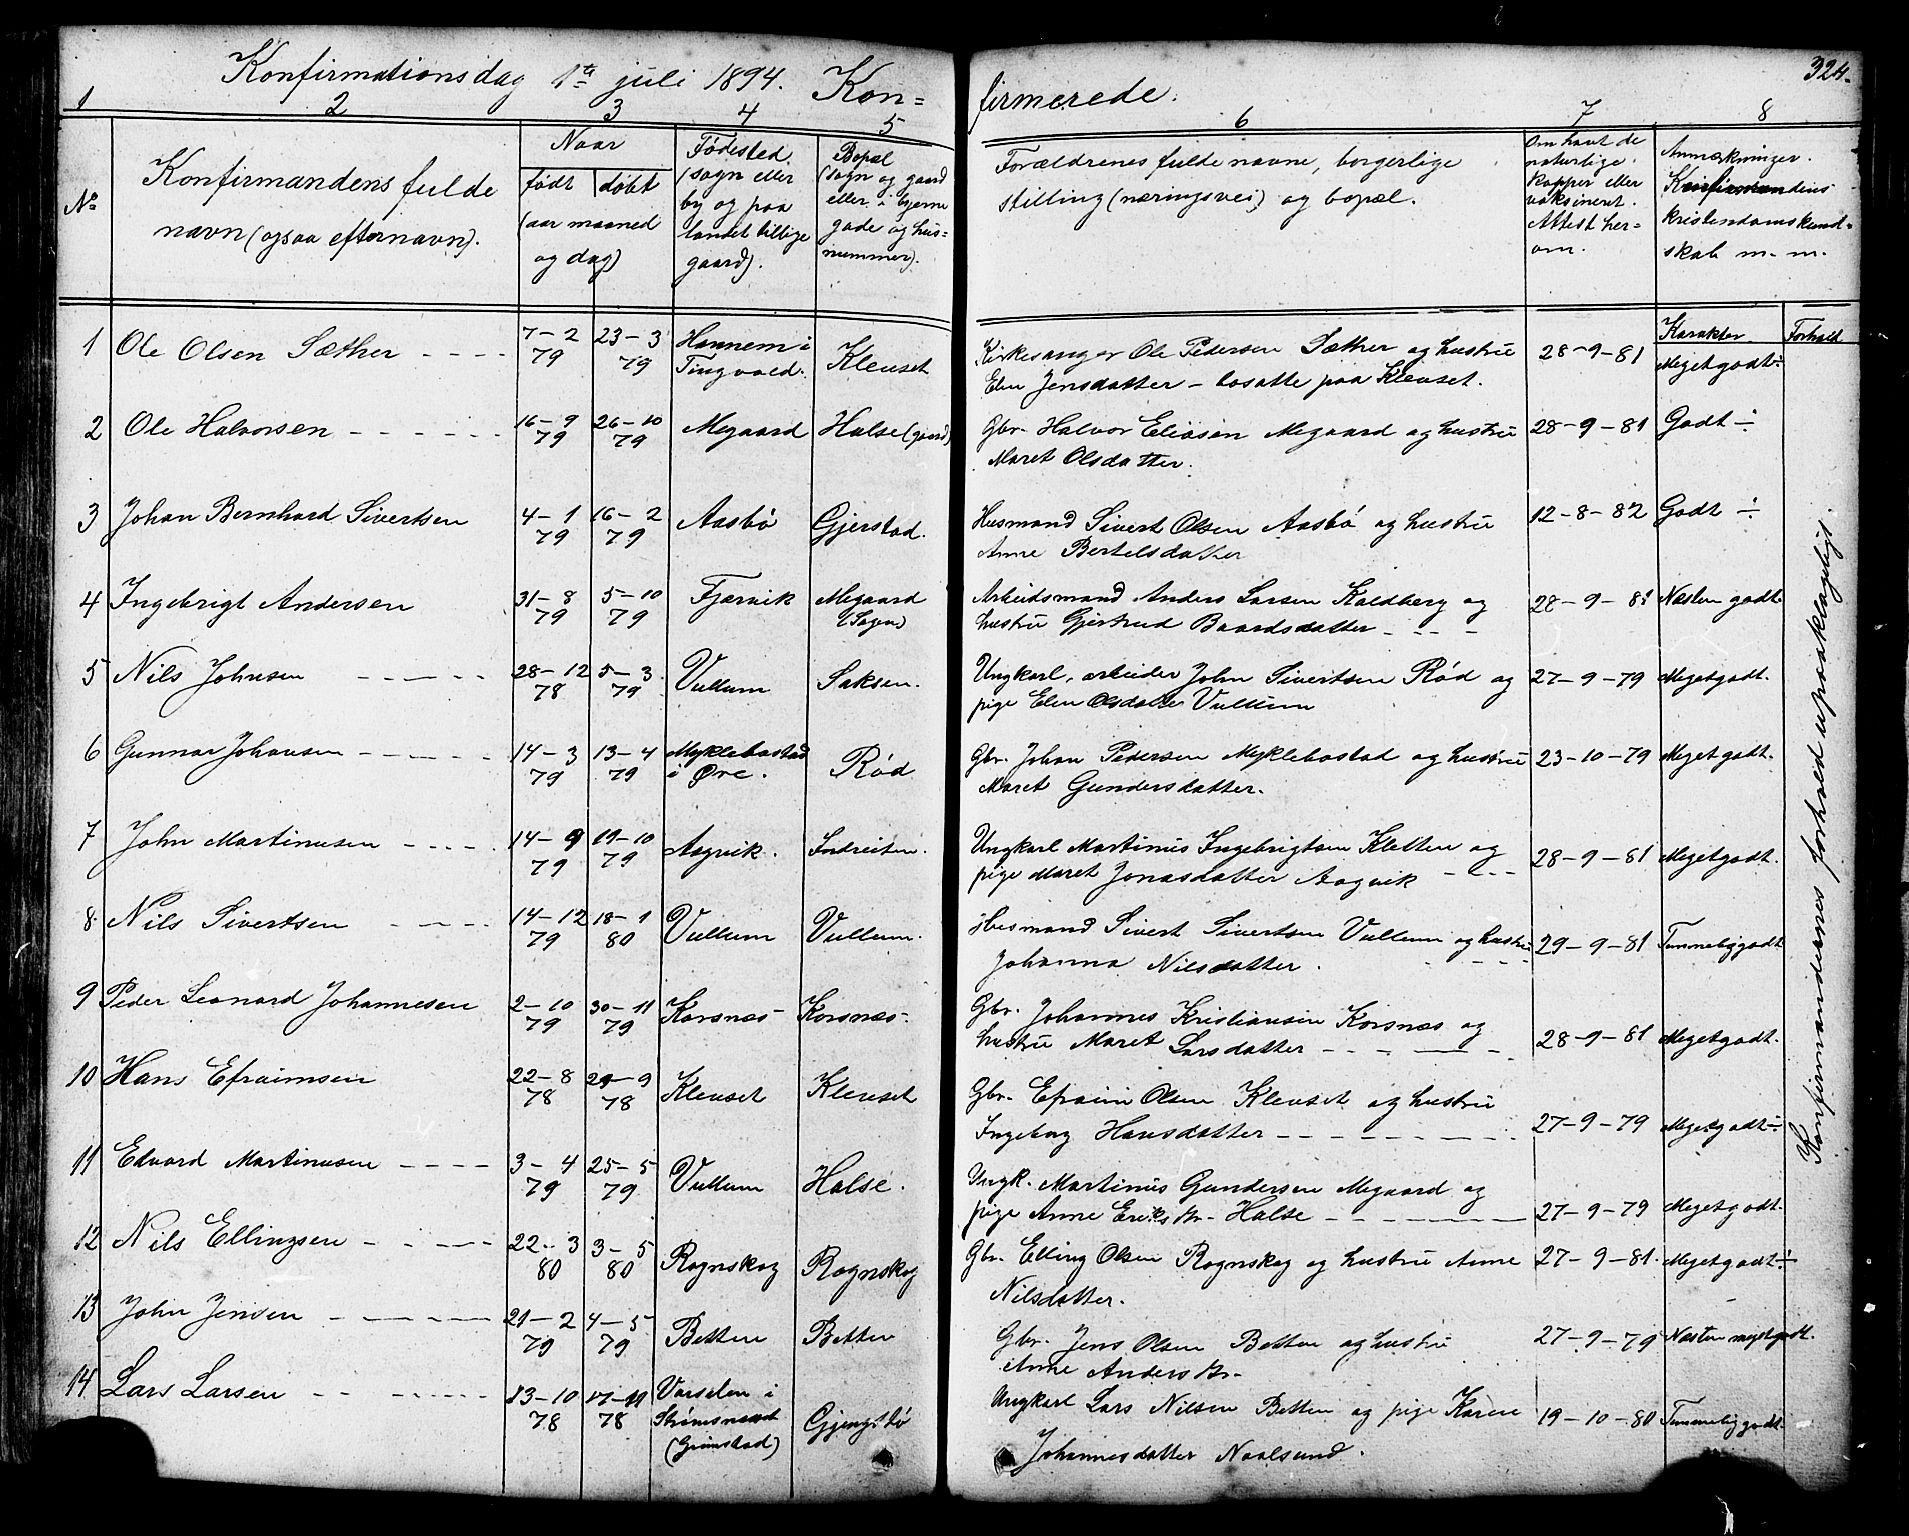 Konfirmationsdag 1te juli 1894. Kon=
firmerede.
324.
1 2 3 4 5 6 7 8
No
Konfirmandens fulde
navn (ogsaa efternavn).
Naar
født døbt
(aar maaned
og dag)
Fødested.
(sogn eller
by og paa
landet tillige
gaard).
Bopæl
(sogn og gaard
eller i byerne
gade og hus=
nummer).
Forældrenes fulde navne, borgerlige
stilling (næringsvei) og bopæl.
Om havt de
naturlige
kopper eller
vaksineret.
Attest her=
om.
Anmærkninger.
Konfirmandens
kristendomskund=
skab m. m.
Karakter Forhold
1 Ole Olsen Sæther 7-2 79 23-3 79 Hannem i Tingvold. Klevset Kirkesanger Ole Pedersen Sæther og hustru 28-9-81 Megetgodt÷
Elen Jensdatter - bosatte paa Klevset.
2 Ole Halvorsen 16-9 79 26-10 79 Megaard Halse (gaard) Gbr. Halvor Eliasen Megaard og hustru 28-9-81 Godt ÷
Maret Olsdatter.
3 Johan Bernhard Sivertsen 4-1 79 16-2 79 Aasbø Gjerstad. Husmand Sivert Olsen Aasbø og hustru 12-8-82 Godt ÷
Anne Bertelsdatter
4 Ingebrigt Andersen 31-8 79 5-10 79 Fjærvik Megaard Arbeidsmand Anders Larsen Kaldberg og 28-9-81 Næsten godt.
hustru Gjertrud Baardsdatter
5 Nils Johnsen 28-12 78 5-3 79 Vullum Saksen. Ungkarl, arbeider John Sivertsen Rød og 27-9-79 Megetgodt.
pige Elen Olsdatter Vullum
6 Gunnar Johansen 14-3 79 13-4 79 Myklebostad i Øre. Rød Gbr. Johan Pedersen Myklebostad og hustru 23-10-79 Megetgodt.
Maret Gundersdatter.
7 John Martinusen 14-9 79 19-10 79 Aagvik. Indreiten. Ungkarl Martinus Ingebrigtsen Kletten og 28-9-81 Megetgodt.
pige Maret Jonasdatter Aagvik
8. Nils Sivertsen 14-12 79 18-1 80 Vullum Vullum. Husmand Sivert Sivertsen Vullum og hustru 29-9-81 Temmeliggodt
Johanna Nilsdatter.
9 Peder Leonard Johannesen 2-10 79 30-11 79 Korsnæs- Korsnæs-. Gbr. Johannes Kristiansen Korsnæs og 28-9-81 Megetgodt.
hustru Maret Larsdatter
10 Hans Efraimsen 22-8 78 29-9 78 Klevset Klevset Gbr. Efraim Olsen Klevset og hustru 27-9-79 Megetgodt÷
Ingeborg Hansdatter
11 Edvard Martinusen 3-4 79 25-5 79 Vullum Halse. Ungk. Martinus Gundersen Megaard og 27-9-79 Megetgodt.
pige Anne Eriks dr. Halse
12 Nils Ellingsen 22-3 80 3-5 80 Rognskog Rognskog Gbr. Elling Olsen Rognskog og hustru Anne 27-9-81. Megetgodt÷
Nilsdatter.
13 John Jensen 21-2 79 4-5 79 Betten Betten Gbr. Jens Olsen Betten og hustru 27-9-79 Næsten megetgodt.
Anne Anders dr.
14 Lars Larsen 13-10 78 17-11 78 Strømsneset (Grimstad) Gjengstø Ungkarl Lars Nilsen Betten og pige Karen 19-10-80 Temmeliggodt.
Johannesdatter Naalsund.
Konfirmandernes forhold upaaklageligt.